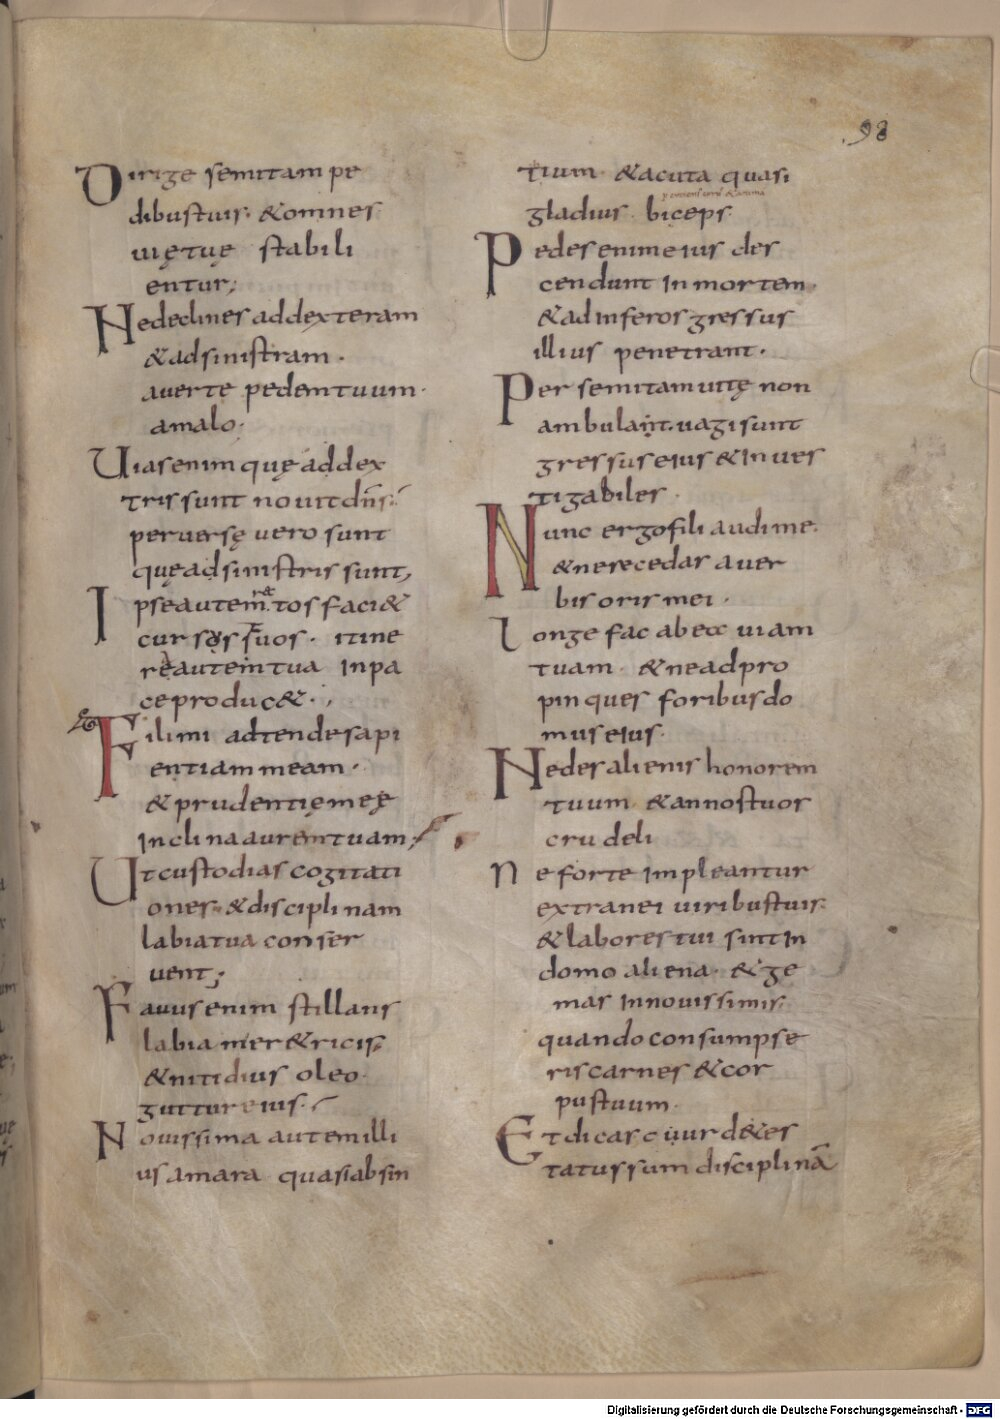 98
Dirige semitam pe
dibus tuis· & omnes
uię tuę stabili
entur;
Ne declines ad dexteram
& ad sinistram·
auerte pedem tuum·
a malo·
Uias enim quę ad dex
tris sunt nouit dn̄s·
peruersę uero sunt
quę ad sinistris sunt,
Ipse autem rectos faci&
cursos suos· itine
re autem tua in pa
ce produc&·,
Fili mi adtende sapi
entiam meam·
& prudentię meę
inclina aurem tuam;
Ut custodias cogitati
ones· & disciplinam
labia tua conser
uent;
Fauus enim stillans
labia mer&ricis;
& nitidius oleo·
guttur eius·
Nouissima autem illi
us amara quasi absin
tium· & acuta quasi
gladius biceps·
Pedes enim eius des
cendunt in mortem·
& ad inferos gressus
illius penetrant·
Per semitam uitę non
ambulant· uagi sunt
gressus eius & inues
tigabiles·
Nunc ergo fili audi me·
& ne recedas a uer
bis oris mei·
Longe fac ab ea uiam
tuam· & ne adpro
pinques foribus do
mus eius·
Ne des alienis honorem
tuum· & annos tuos
crudeli
Ne forte impleantur
extranei uiribus tuis·
& labores tui sint in
domo aliena· & ge
mas in nouissimis·
quando consumpse
ris carnes & cor
pus tuum·
Et dicas cuur d&es
tatus sum disciplinā
Digitalisierung gefördert durch die Deutsche Forschungsgemeinschaft - DFG